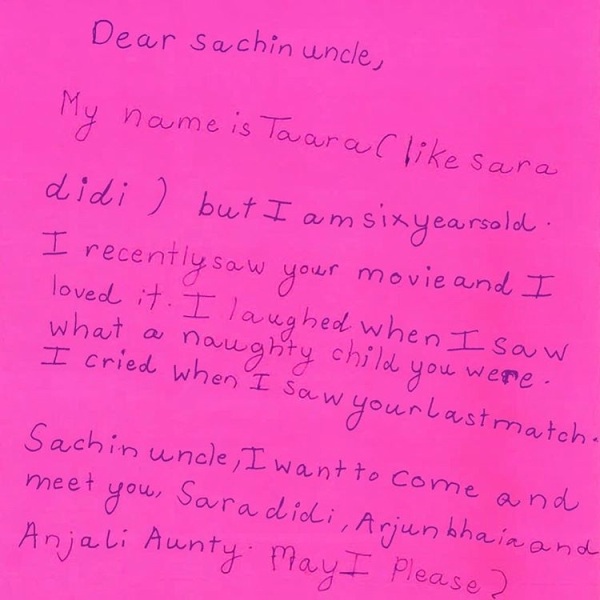 Dear sachin uncle,
My name is Taara ( like sara
didi ) but I am six years old.
I recently saw your movie and I
loved it. I laughed when I saw
what a naughty child you were.
I cried when I saw your last match.
Sachin uncle, I want to come and
meet you, Sara didi, Arjun bhaia and
Anjali Aunty. May I Please?